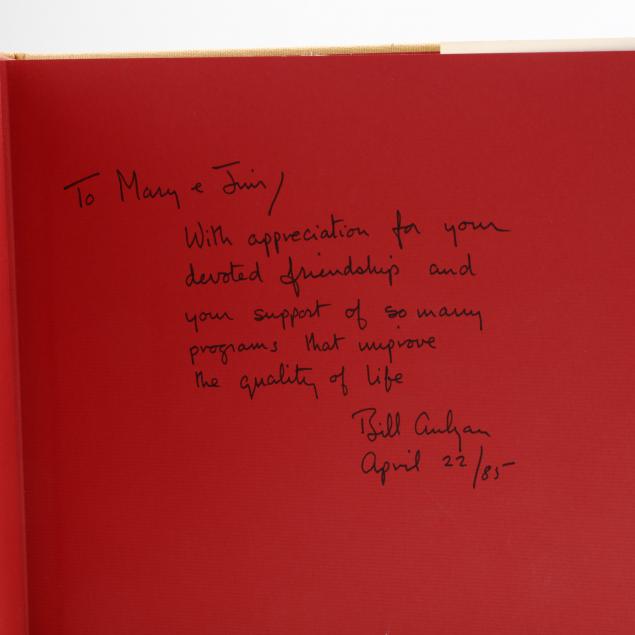 To Mary e Jim/
With appreciation for your
devoted friendship and
your support of so many
programs that improve
the quality of life
Bill Anlyan
April 22/85